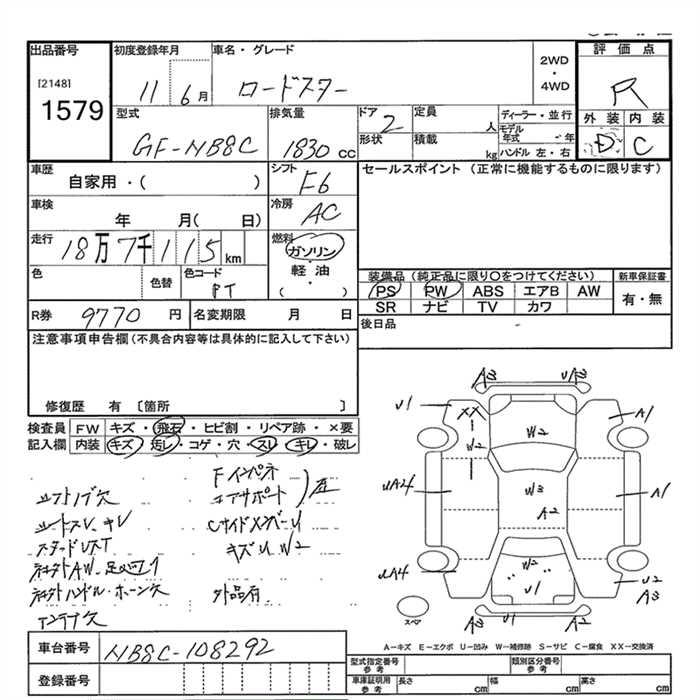 出品番号
[2148]
1579
初度登録年月
11 6月
車名・グレード
ロードスター
2WD
・
4WD
評価点
R
外装 内装
D C
型式
GF-NB8C
排気量
1830 cc
ドア
2
形状
定員
人
積載
kg
ディーラー・並行
モデル年式 年
ハンドル 左・右
車歴
自家用・( )
シフト
F6
セールスポイント (正常に機能するものに限ります)
車検
年 月( 日)
冷房
AC
走行
18万7千115km
燃料
ガソリン
・
軽・油
( )
色
色替
色コード
PT
装備品 (純正品に限り○をつけてください)
PS PW ABS エアB AW
SR ナビ TV カワ
新車保証書
有・無
R券
9770 円
名変期限 月 日
後日品
注意事項申告欄 (不具合内容等は具体的に記入して下さい)
修復歴 有 〔箇所 〕
検査員
記入欄
FW キズ・飛石・ヒビ割・リペア跡・×要
内装 キズ・汚レ・コゲ・穴・スレ・キレ・破レ
シフトノブ欠
シートスレ、キレ
社外AW
社外ハンドル・ホーン欠
アンテナ欠
Fインパネ
コアサポート
CサイドメンバーU
キズU W2
A3
U3
U1
XX
W2
W2
A1
UA4
W3
A2
A1
UA4
W2
U1
U2
A3
A2
A2
スペア
A－キズ E－エクボ U－凹み W－補修跡 S－サビ C－腐食 XX－交換済
車台番号
NB8C-108292
登録番号
型式指定番号
参考
類別区分番号
参考
車庫証明用
参考
長さ cm
幅 cm
高さ cm